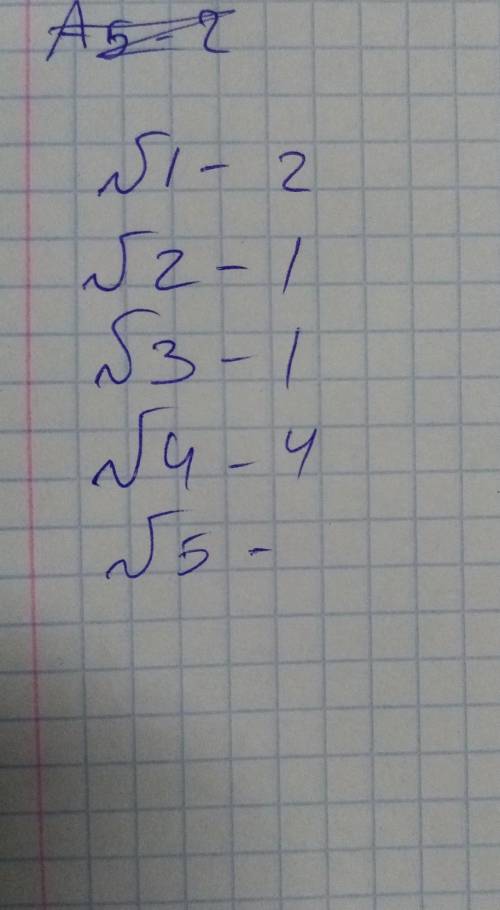 A5-2
√1 - 2
√2 - 1
√3 - 1
√4 - 4
√5 -